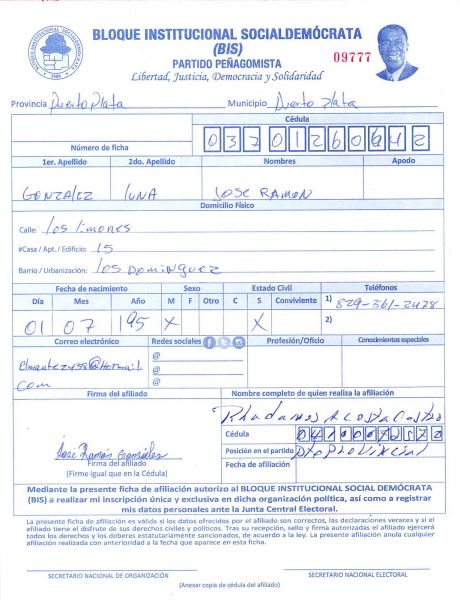 BLOQUE INSTITUCIONAL SOCIALDEMÓCRATA
(BIS)
PARTIDO PEÑAGOMISTA
09777
Libertad, Justicia, Democracia y Solidaridad
Provincia Puerto Plata Municipio Puerto Plata
Cédula
Número de ficha
1er. Apellido 2do. Apellido Nombres Apodo
GONZALEZ LUNA JOSE RAMON
Domicilio Físico
Calle: Los Limones
#Casa / Apt. / Edificio: 15
Barrio / Urbanización: Los Dominguez
Fecha de nacimiento Sexo Estado Civil Teléfonos
Día Mes Año M F Otro C S Conviviente 1) 829-361-2478
01 07 195 X X 2)
Correo electrónico Redes sociales Profesión/Oficio Conocimientos especiales
@Hotmail.
com
@
@
@
Firma del afiliado Nombre completo de quien realiza la afiliación
Rhadames Acosta Castro
Cédula
Jose Ramón González
Posición en el partido Dto Provincial
Firma del afiliado
(Firme igual que en la Cédula)
Fecha de afiliación
Mediante la presente ficha de afiliación autorizo al BLOQUE INSTITUCIONAL SOCIAL DEMÓCRATA
(BIS) a realizar mi inscripción única y exclusiva en dicha organización política, así como a registrar
mis datos personales ante la Junta Central Electoral.
La presente ficha de afiliación es válida si los datos ofrecidos por el afiliado son correctos, las declaraciones veraces y si el
afiliado tiene el disfrute de sus derechos civiles y políticos. Tras su recepción, sello y firma autorizadas el afiliado ejercerá
todos los derechos y los deberes estatutariamente sancionados, de acuerdo a la ley. La presente afiliación anula cualquier
afiliación realizada con anterioridad a la fecha que aparece en esta ficha.
SECRETARIO NACIONAL DE ORGANIZACIÓN SECRETARIO NACIONAL ELECTORAL
(Anexar copia de cédula del afiliado)